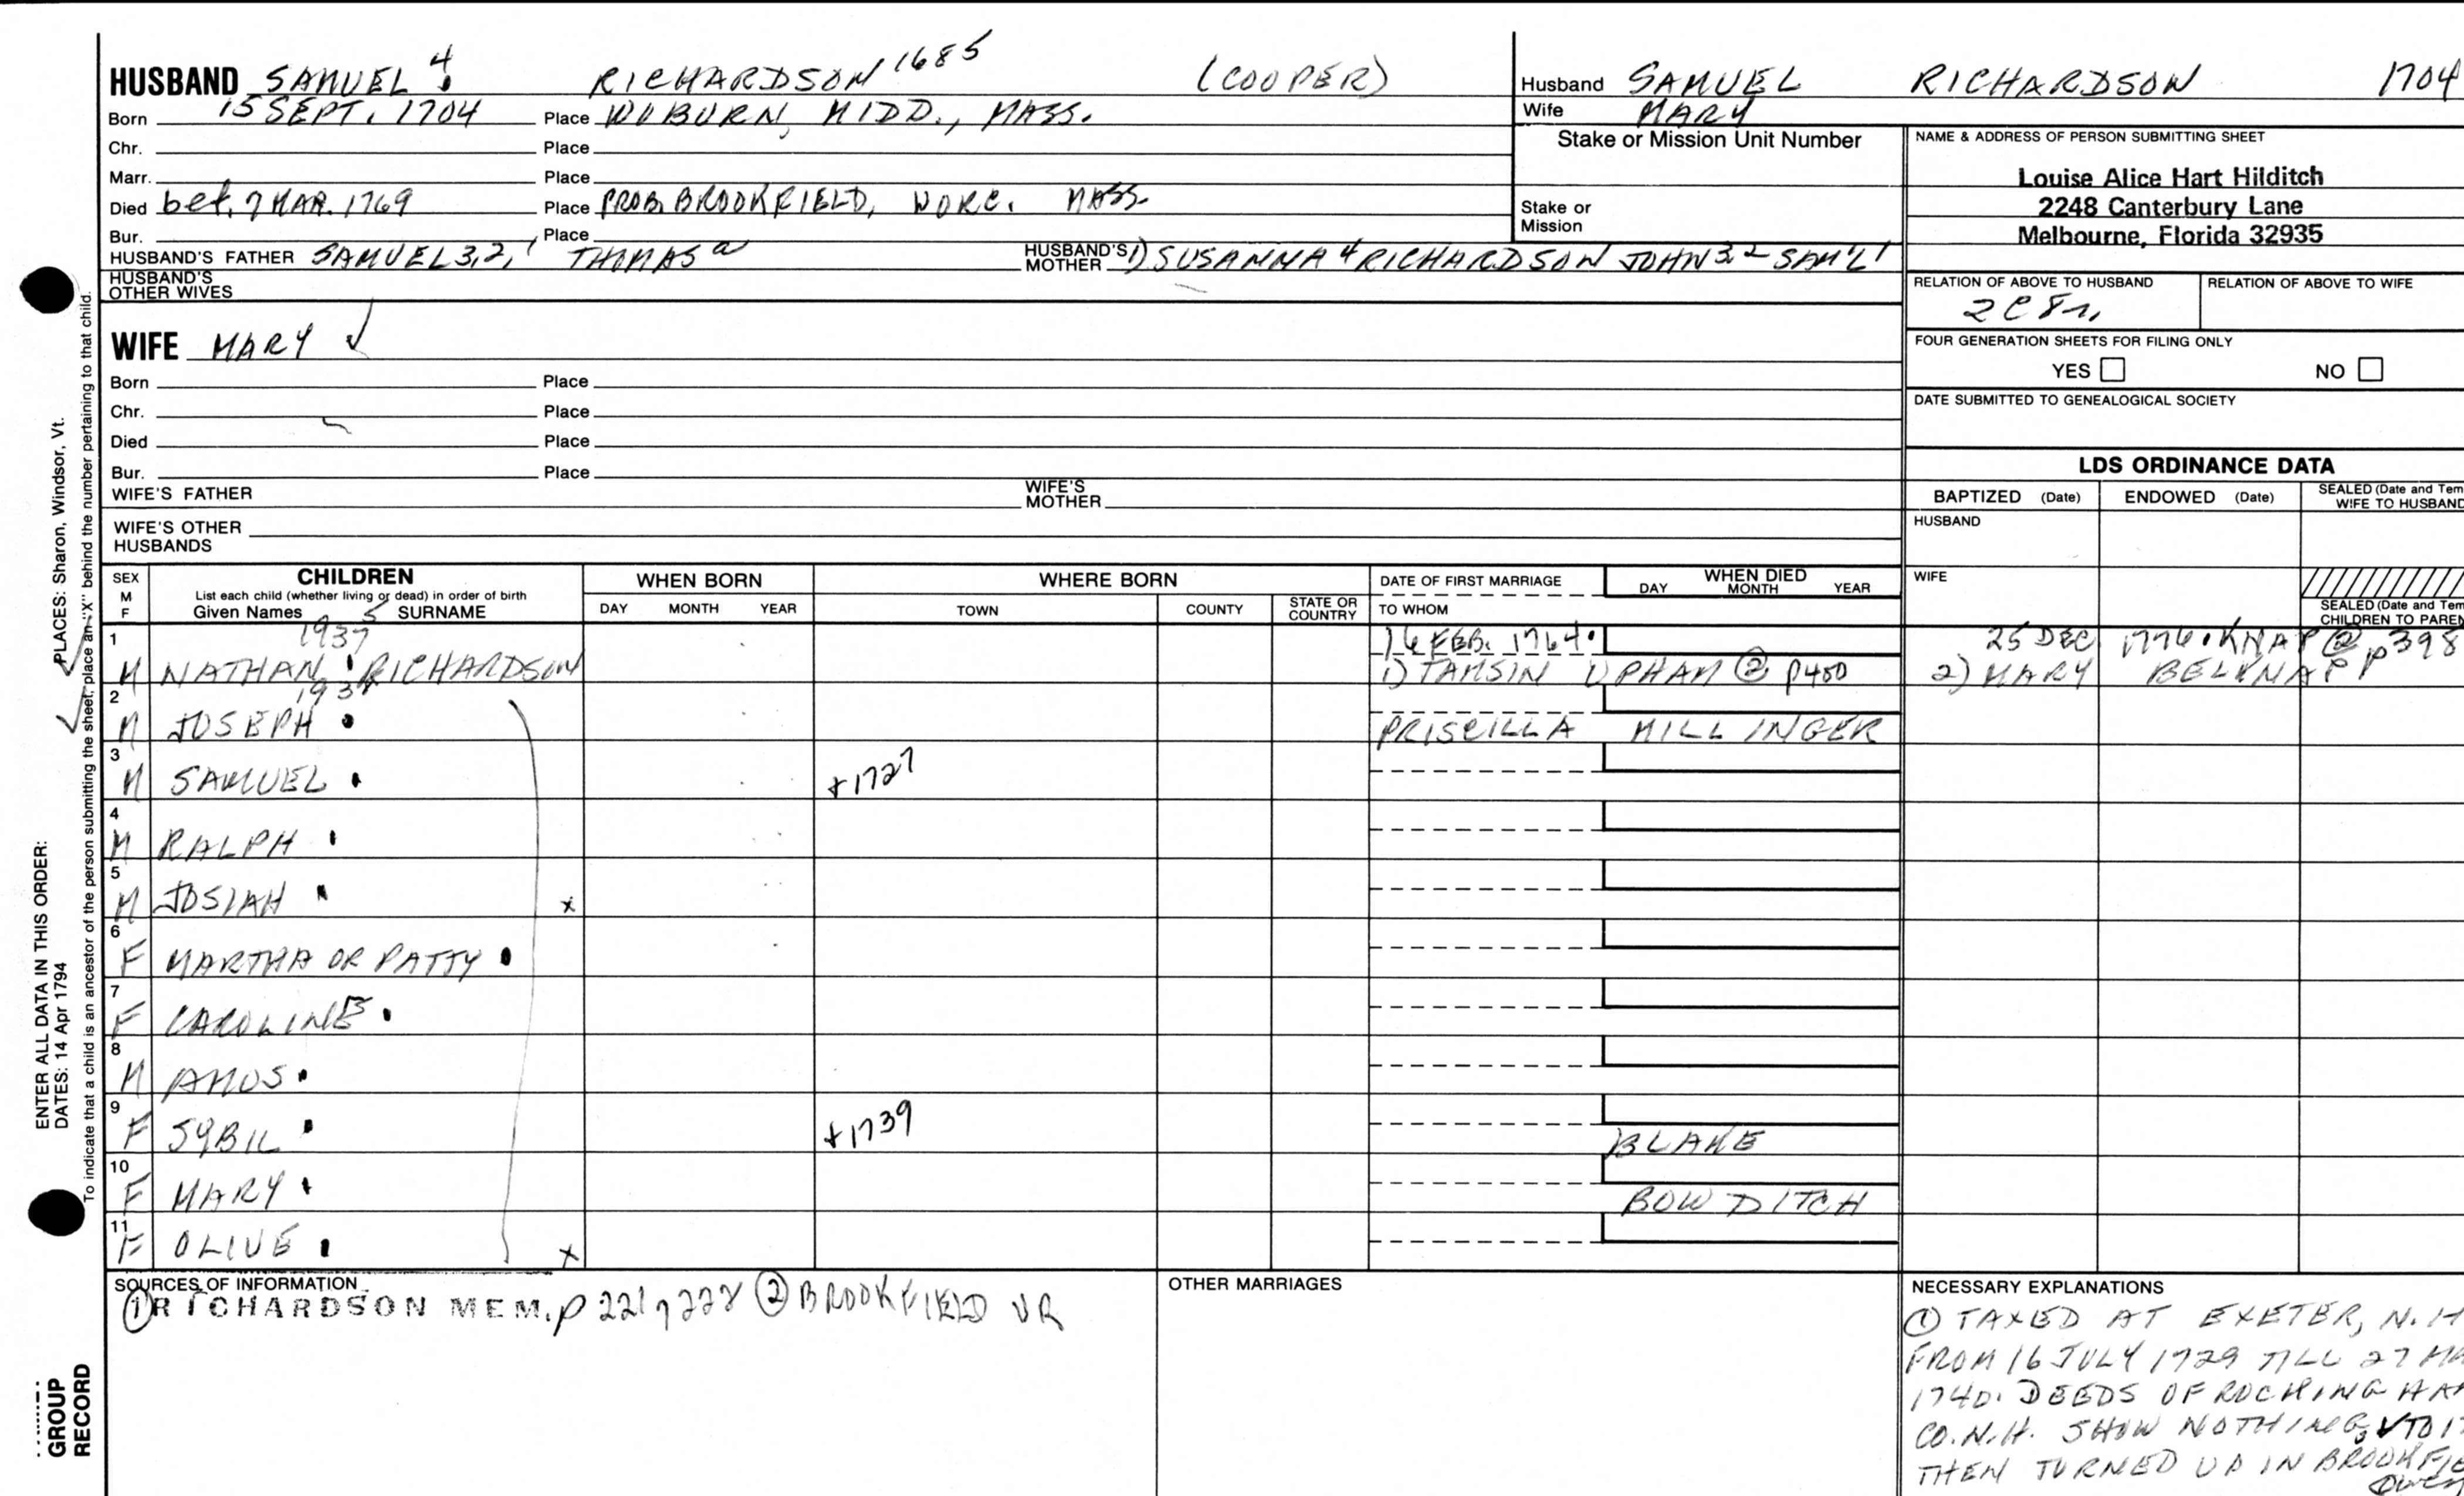 HUSBAND SAMUEL 4 RICHARDSON 1685 (COOPER)
Born 15 SEPT. 1704 Place WOBURN, MIDD., MASS.
Chr. Place
Marr. Place
Died bef. 7 MAR. 1769 Place PROB. BROOKFIELD, WORC. MASS.
Bur. Place
HUSBAND'S FATHER SAMUEL 3, 2, 1 THOMAS a HUSBAND'S MOTHER 1) SUSANNA 4 RICHARDSON JOHN 3, 2 SAM'L 1
HUSBAND'S OTHER WIVES
Husband SAMUEL RICHARDSON 1704
Wife MARY
Stake or Mission Unit Number
Stake or Mission
NAME & ADDRESS OF PERSON SUBMITTING SHEET
Louise Alice Hart Hilditch
2248 Canterbury Lane
Melbourne, Florida 32935
RELATION OF ABOVE TO HUSBAND RELATION OF ABOVE TO WIFE
2C8r.
FOUR GENERATION SHEETS FOR FILING ONLY
YES NO
DATE SUBMITTED TO GENEALOGICAL SOCIETY
WIFE MARY ✓
Born Place
Chr. Place
Died Place
Bur. Place
WIFE'S FATHER WIFE'S MOTHER
WIFE'S OTHER HUSBANDS
LDS ORDINANCE DATA
BAPTIZED (Date) ENDOWED (Date) SEALED (Date and Tem
WIFE TO HUSBAND
HUSBAND
WIFE
SEALED (Date and Tem
CHILDREN TO PAREN
SEX M F CHILDREN WHEN BORN WHERE BORN DATE OF FIRST MARRIAGE WHEN DIED
List each child (whether living or dead) in order of birth
Given Names SURNAME DAY MONTH YEAR TOWN COUNTY STATE OR COUNTRY TO WHOM DAY MONTH YEAR
1 1935 16 FEB. 1764. 25 DEC 1776. KNAP @ p398
M NATHAN RICHARDSON 1) TAMSIN UPHAM ② p450 2) MARY BELKNAP
2
M JOSEPH PRISCILLA MILLINGER
3
M SAMUEL +1727
4
M RALPH
5
M JOSIAH x
6
F MARTHA OR PATTY
7
F CAROLINE
8
M AMOS
9
F SYBIL +1739 BLAKE
10
F MARY BOWDITCH
11
F OLIVE x
SOURCES OF INFORMATION OTHER MARRIAGES NECESSARY EXPLANATIONS
① RICHARDSON MEM. p 221, 222 ② BROOKFIELD VR
① TAXED AT EXETER, N.H
FROM 16 JULY 1729 TILL 27 MA
1740. DEEDS OF ROCKINGHA
CO. N.H. SHOW NOTHING TO 17
THEN TURNED UP IN BROOKFIE
PLACES: Sharon, Windsor, Vt.
ENTER ALL DATA IN THIS ORDER:
DATES: 14 Apr 1794
To indicate that a child is an ancestor of the person submitting the sheet, place an "X" behind the number pertaining to that child.
GROUP
RECORD